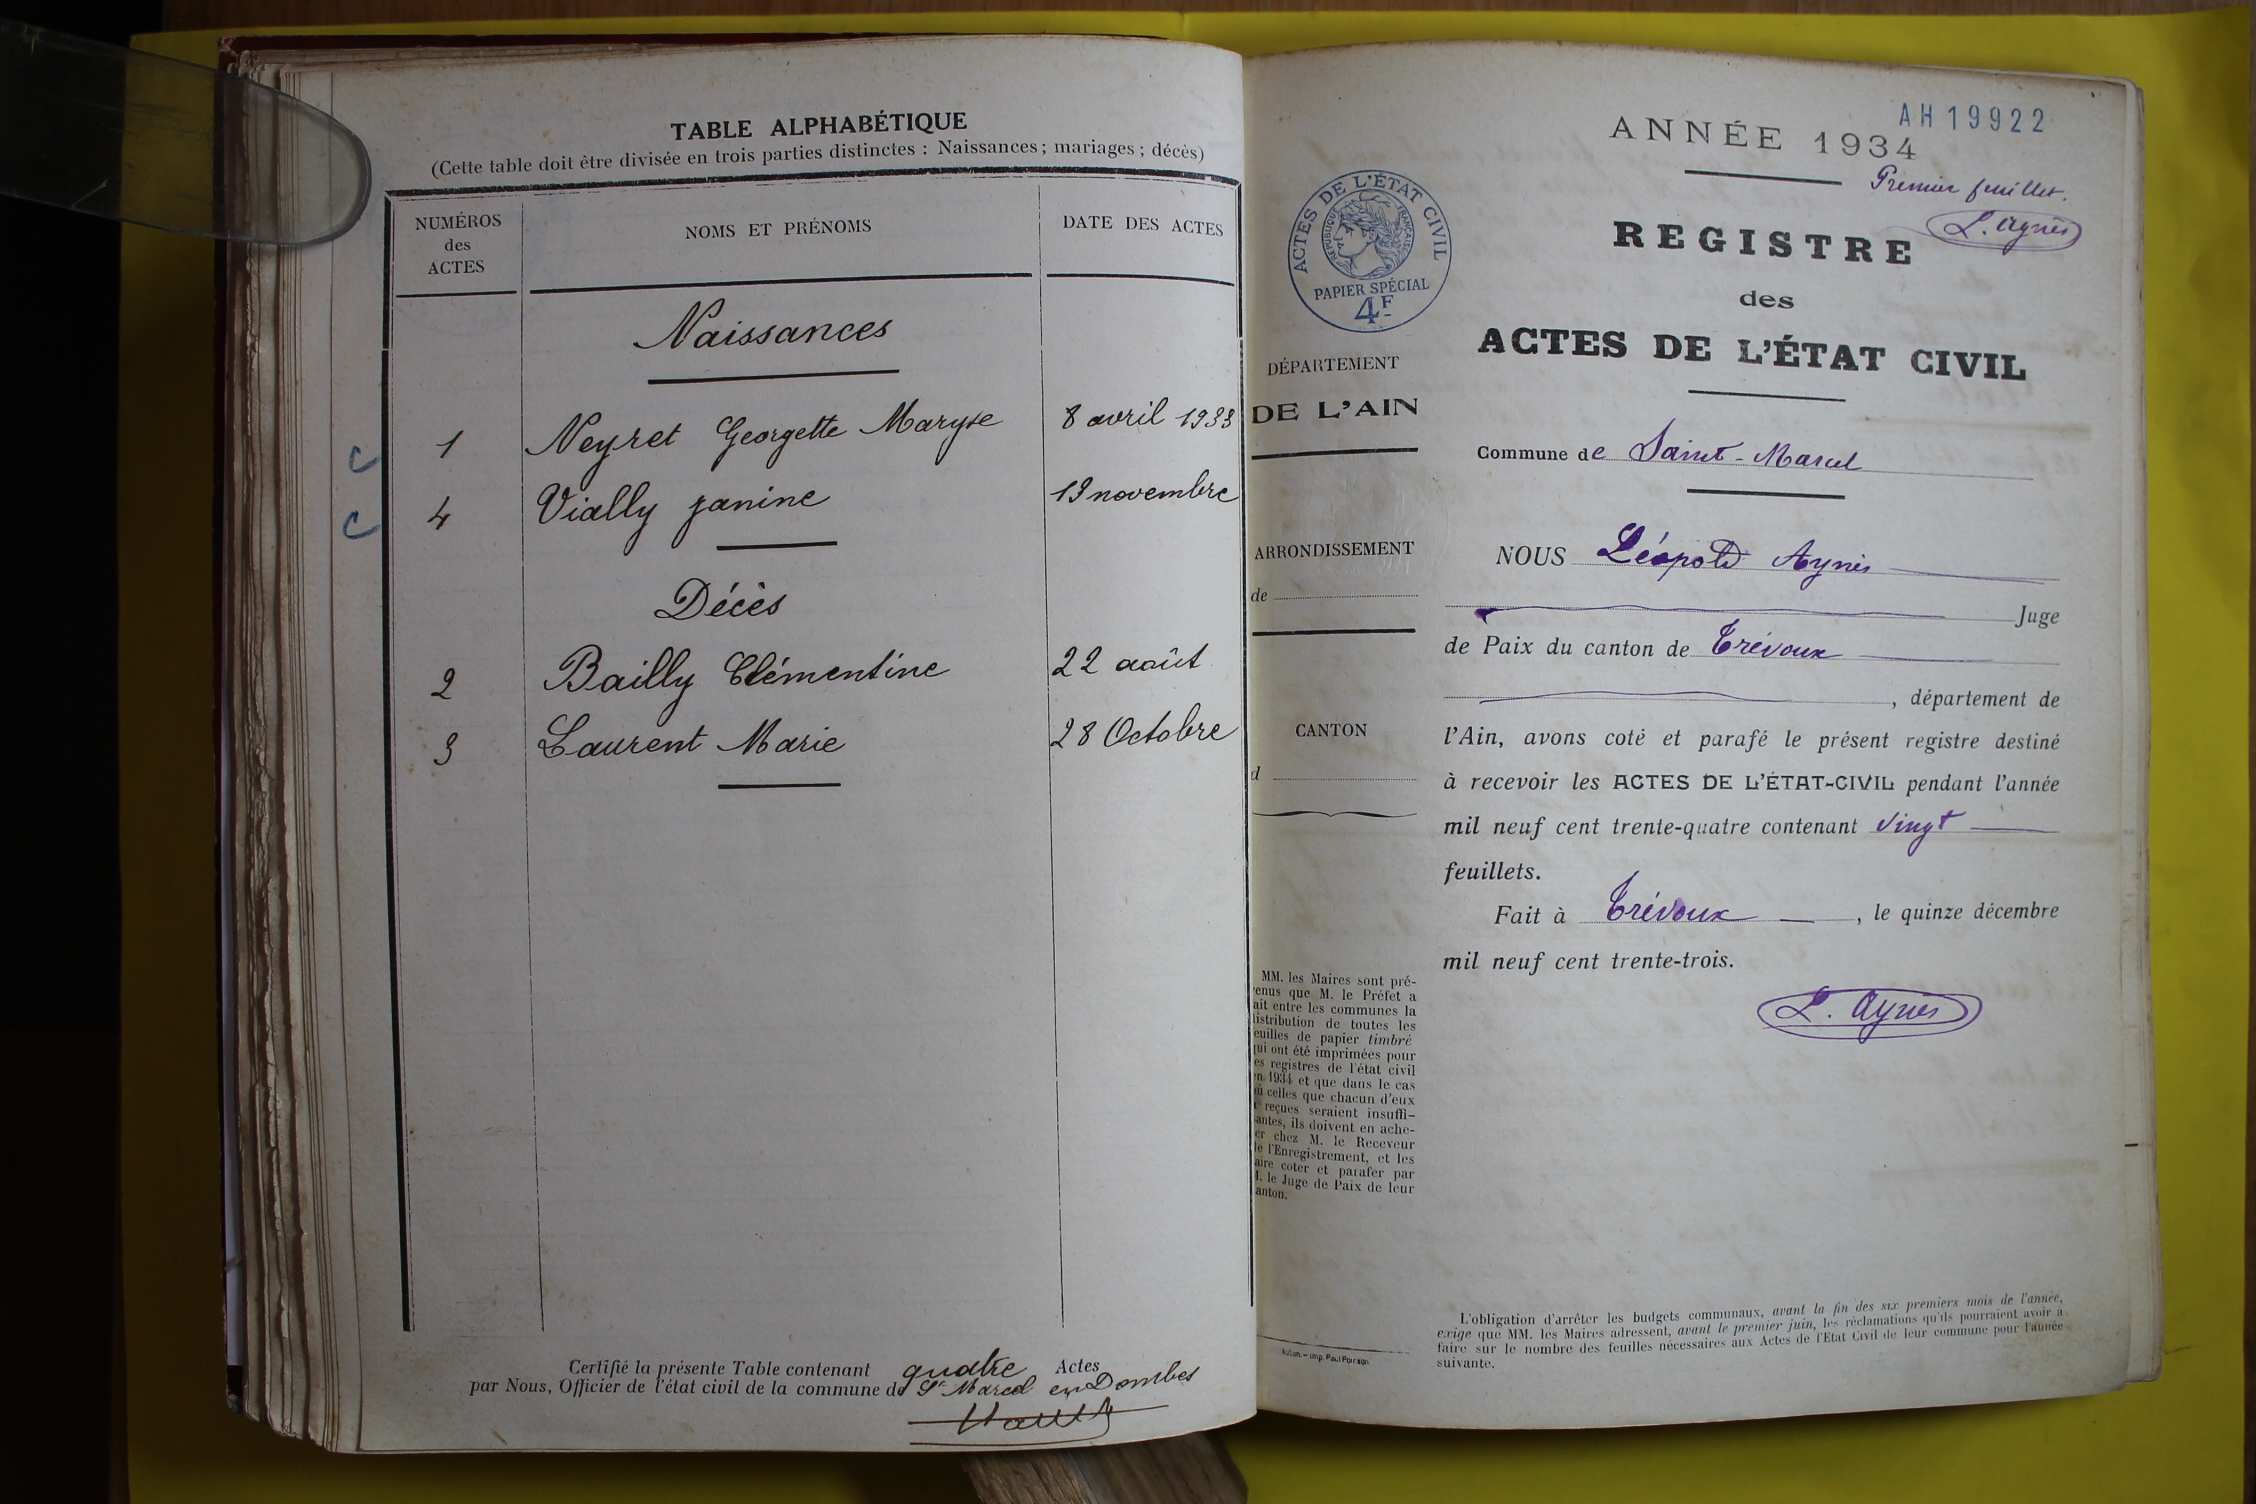 TABLE ALPHABÉTIQUE
(Cette table doit être divisée en trois parties distinctes : Naissances ; mariages ; décès)
NUMÉROS des ACTES
NOMS ET PRÉNOMS
DATE DES ACTES
Naissances
c 1 Neyret Georgette Maryse 8 avril 1933
c 4 Vially Janine 19 novembre
Décès
2 Bailly Clémentine 22 août
3 Laurent Marie 28 Octobre
Certifié la présente Table contenant quatre Actes
par Nous, Officier de l'état civil de la commune de St Marcel en Dombes
AH19922
ANNÉE 1934
Premier feuillet.
L. Aynès
ACTES DE L'ÉTAT CIVIL
RÉPUBLIQUE FRANÇAISE
PAPIER SPÉCIAL
4F
REGISTRE
des
ACTES DE L'ÉTAT CIVIL
DÉPARTEMENT
DE L'AIN
Commune de Saint-Marcel
ARRONDISSEMENT
de
CANTON
d
NOUS Léopold Aynès
Juge
de Paix du canton de Trévoux
, département de
l'Ain, avons coté et parafé le présent registre destiné
à recevoir les ACTES DE L'ÉTAT-CIVIL pendant l'année
mil neuf cent trente-quatre contenant vingt
feuillets.
Fait à Trévoux, le quinze décembre
mil neuf cent trente-trois.
L. Aynès
MM. les Maires sont pré-
enus que M. le Préfet a
ait entre les communes la
istribution de toutes les
euilles de papier timbré
qui ont été imprimées pour
es registres de l'état civil
n 1934 et que dans le cas
ù celles que chacun d'eux
reçues seraient insuffi-
antes, ils doivent en ache-
er chez M. le Receveur
e l'Enregistrement, et les
aire coter et parafer par
. le Juge de Paix de leur
anton.
Imp. Paul Poirson
L'obligation d'arrêter les budgets communaux, avant la fin des six premiers mois de l'année,
exige que MM. les Maires adressent, avant le premier juin, les réclamations qu'ils pourraient avoir à
faire sur le nombre des feuilles nécessaires aux Actes de l'Etat Civil de leur commune pour l'année
suivante.